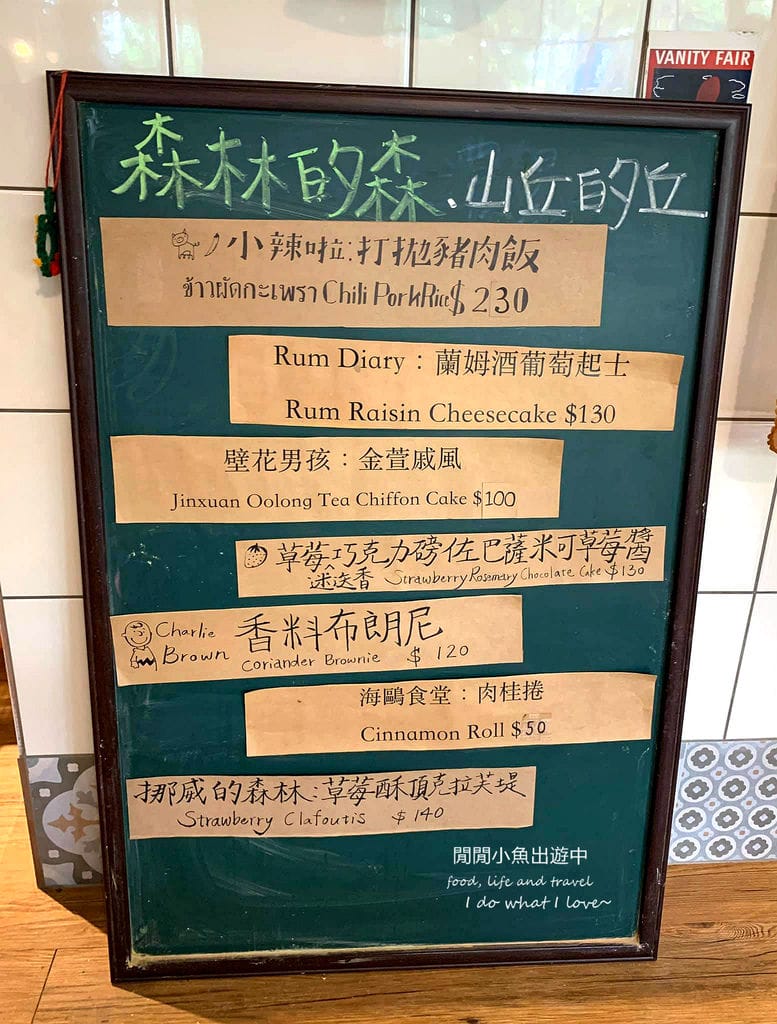 VANITY FAIR
森林的森.山丘的丘
小辣啦:打拋豬肉飯
ข้าวผัดกะเพรา Chili Pork Rice $230
Rum Diary：蘭姆酒葡萄起士
Rum Raisin Cheesecake $130
壁花男孩：金萱戚風
Jinxuan Oolong Tea Chiffon Cake $100
草莓巧克力磅佐巴薩米可草莓醬
迷迭香 Strawberry Rosemary Chocolate Cake $130
Charlie 香料布朗尼
Brown Coriander Brownie $120
海鷗食堂：肉桂捲
Cinnamon Roll $50
挪威的森林:草莓酥頂克拉芙堤
Strawberry Clafoutis $140
閒閒小魚出遊中
food, life and travel
I do what I love~